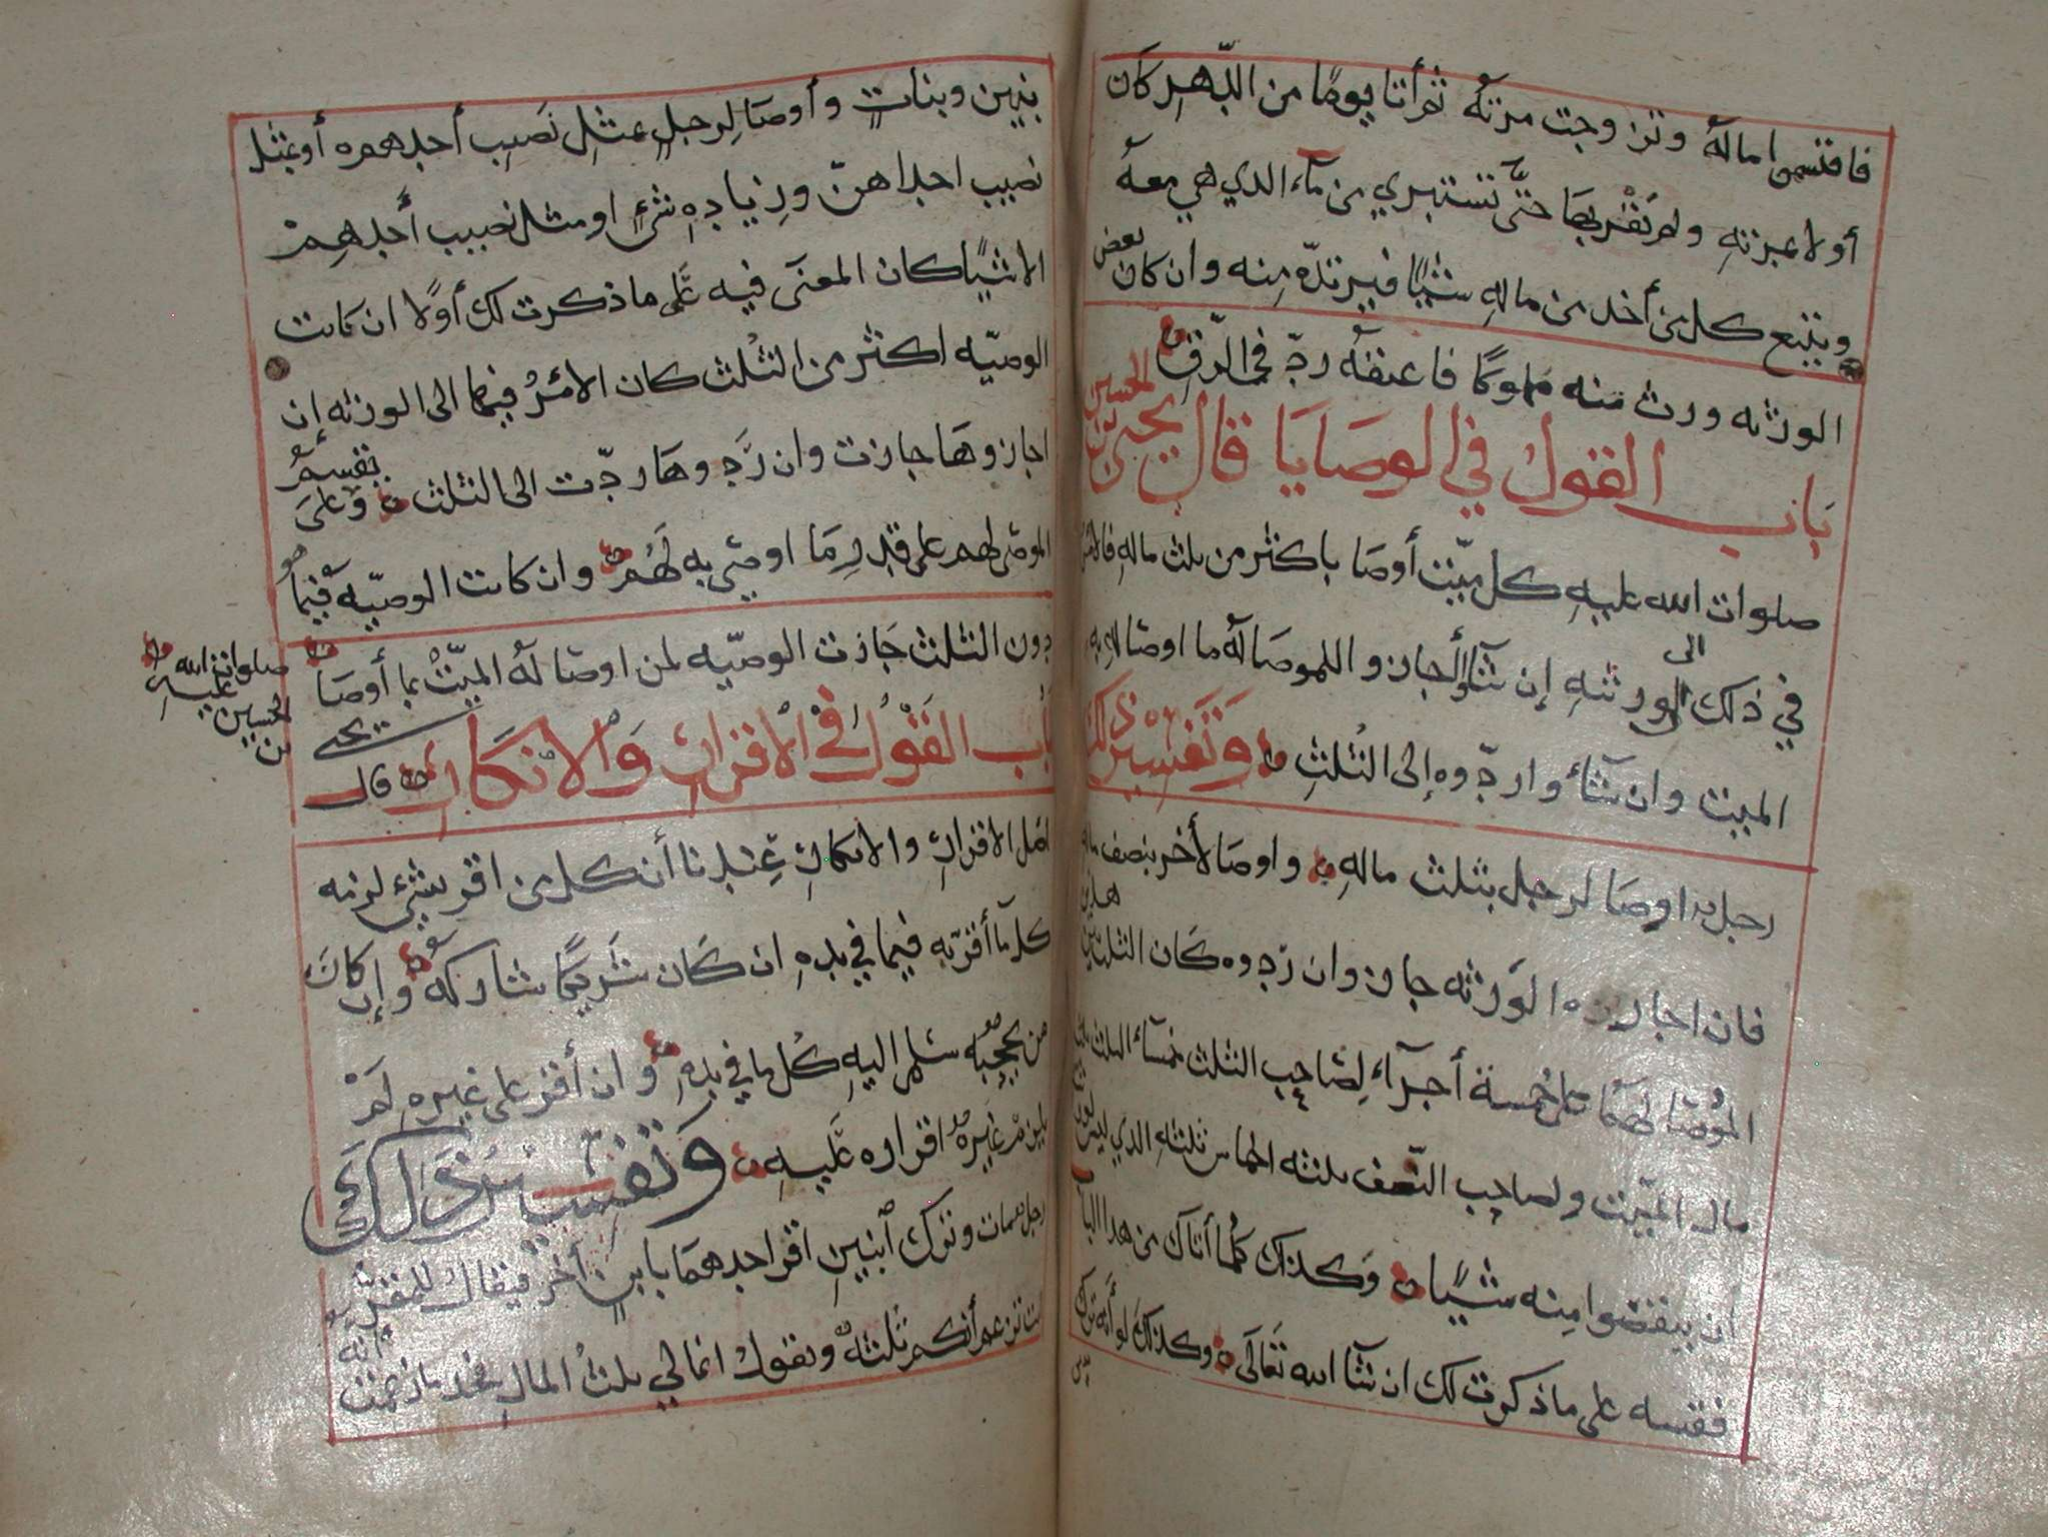 فاقتسموا ماله وتزوجت مرته ثم أتا يومًا من الدّهر كان
أولا بمرته ولم يَقْربها حتَّى تستبري من مآء الذي هي معه
ويتبع كل من أخذ من ماله شيئًا فيرتدّه منه وان كان بعض
الورثه ورث منه مملوكًا فاعتقه ردّ في الرّق
بَاب القول في الوصَايَا قال يحيى بن الحسين
صلوات الله عليهِ كل ميّت أوصَا باكثر من ثلث مالهِ فالامر
في ذلك الى الورثهِ إن شآؤا أجازوا للموصَا له ما اوصَا له به
الميت وان شآؤا ردّوه إلى الثلثِ وتفسير ذلك
رجل اوصَا لرجل بثلث مالهِ واوصَا لأخر بنصف ماله
فان اجاز هذه الورثه جاز وان ردّوه كان الثلث بين هذين
الموصَا لهمَا على خمسة أجزآء لصَاحب الثلث خمسآء الثلث ثلث
مال الميّت ولصاحب النّصف ثلثه اخماس ثلثهِ الذي ليس لهم
ان ينقصوا منه شيئًا وكذلك كلما أتاك من هذا الباب
فقسه على ما ذكرت لك ان شآ الله تعَالى وكذلك لو أنه ترك
بنين وبنات وأوصَا لرجلٍ بمثلِ نَصيب أحدهم أو بمثل
نصيب احداهنّ وزيادهِ شيءٍ او مثل نصيب أحدهِمْ
الا شيئًا كان المعنَى فيه عَلَى ما ذكرت لك أولًا ان كانت
الوصيّه اكثر من الثلث كان الأمرُ فيها الى الورثه إن
اجازوهَا جازت وان رَدّوهَا ردّت الى الثلث وعلى يقسم
الموصَى لهم على قدرِ مَا اوصَى به لَهُم وان كانت الوصيّه فيما هو
دون الثلث جَازت الوصيّه لمن اوصَا لهُ الميّتُ بما أوصَا
باب القَوْل في الاقرارِ وَالانكَارِ قال يحيى
بن
الحسين
صلوات الله عليه
اصل الاقرارِ والانكارِ عندنا أن كل من اقر بشيءٍ لزمه
كل مآ أقر به فيما في يدهِ ان كَان شريكًا شاركه وإن كانَ
من يحجبه سلم اليهِ كُل ما في يدهِ وان أقر على غيرهِ لمْ
يلزم غيره اقراره عَليهِ وَتفسير ذلك
رجل مات وترك ابنينِ اقر احدهمَا بابنٍ أخر فيقال للمقر به
انت تزعم أنكم ثلثهٌ وتقول انما لي ثلثُ المالِ فخذ ما زعمت انه